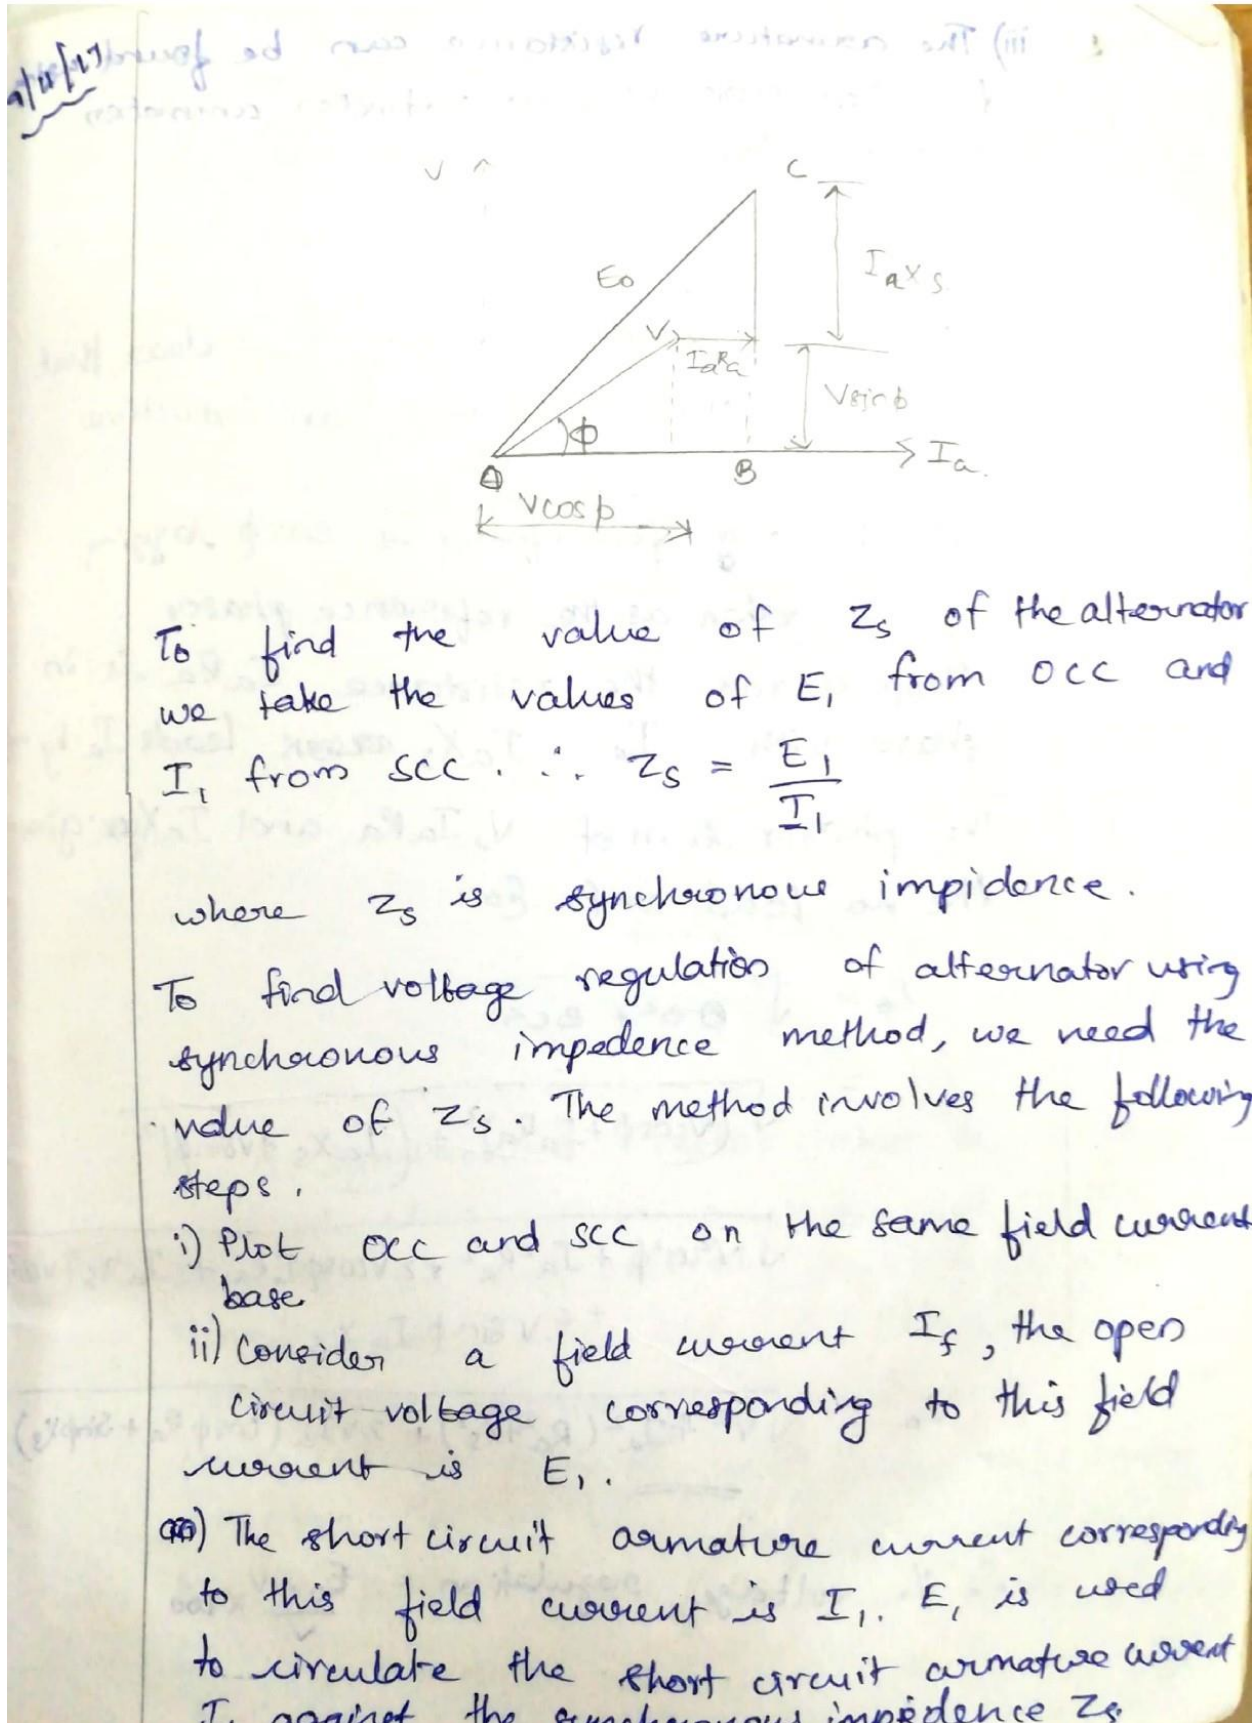 V
C
E₀
IₐXₛ
V
IₐRₐ
V sinϕ
ϕ
Iₐ
B
V cosϕ
To find the value of Zₛ of the alternator
we take the values of E₁ from OCC and
I₁ from SCC. ∴ Zₛ = E₁/I₁
where Zₛ is synchronous impidence.
To find voltage regulation of alternator using
synchronous impedence method, we need the
value of Zₛ. The method involves the following
steps.
i) Plot OCC and SCC on the same field current
base
ii) Consider a field current I_f, the open
circuit voltage corresponding to this field
current is E₁.
iii) The short circuit armature current corresponding
to this field current is I₁. E₁ is used
to circulate the short circuit armature current
I₁ against the synchronous impedence Zₛ